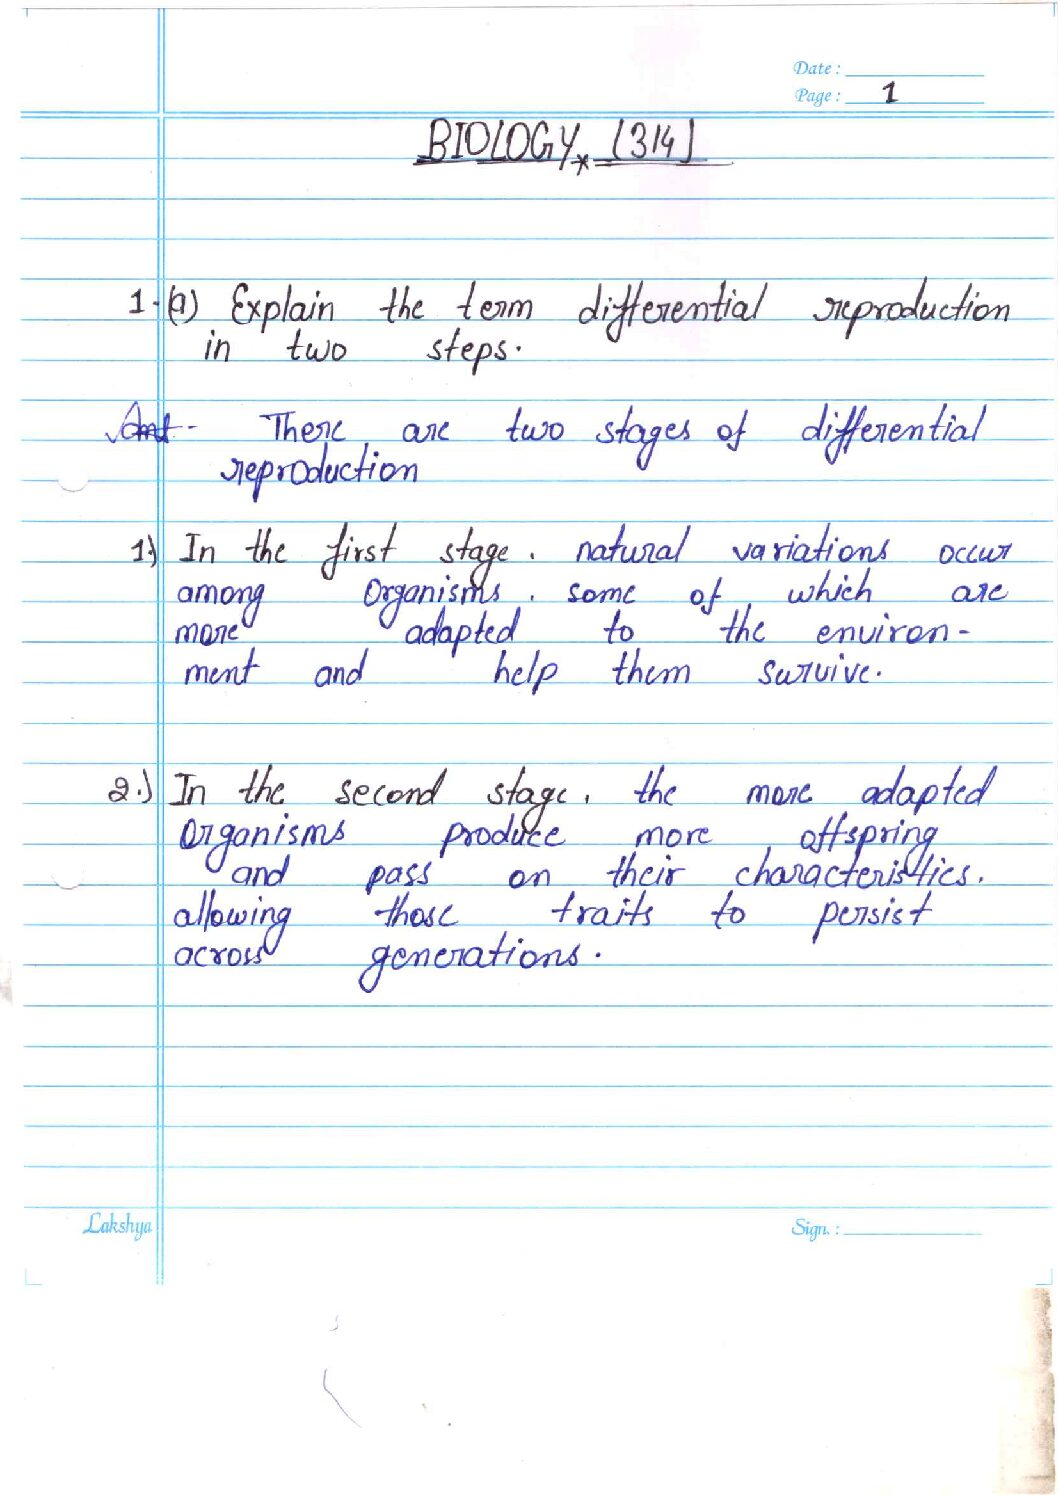 Date :
Page : 1
BIOLOGY * (314)
1.(a) Explain the term differential reproduction
in two steps.
Ans- There are two stages of differential
reproduction
1.) In the first stage, natural variations occur
among organisms, some of which are
more adapted to the environ-
ment and help them survive.
2.) In the second stage, the more adapted
organisms produce more offspring
and pass on their characteristics,
allowing those traits to persist
across generations.
Lakshya
Sign. :